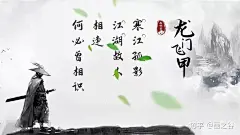 龙门飞甲
寒江孤影
江湖故人
相逢
何必曾相识
知乎